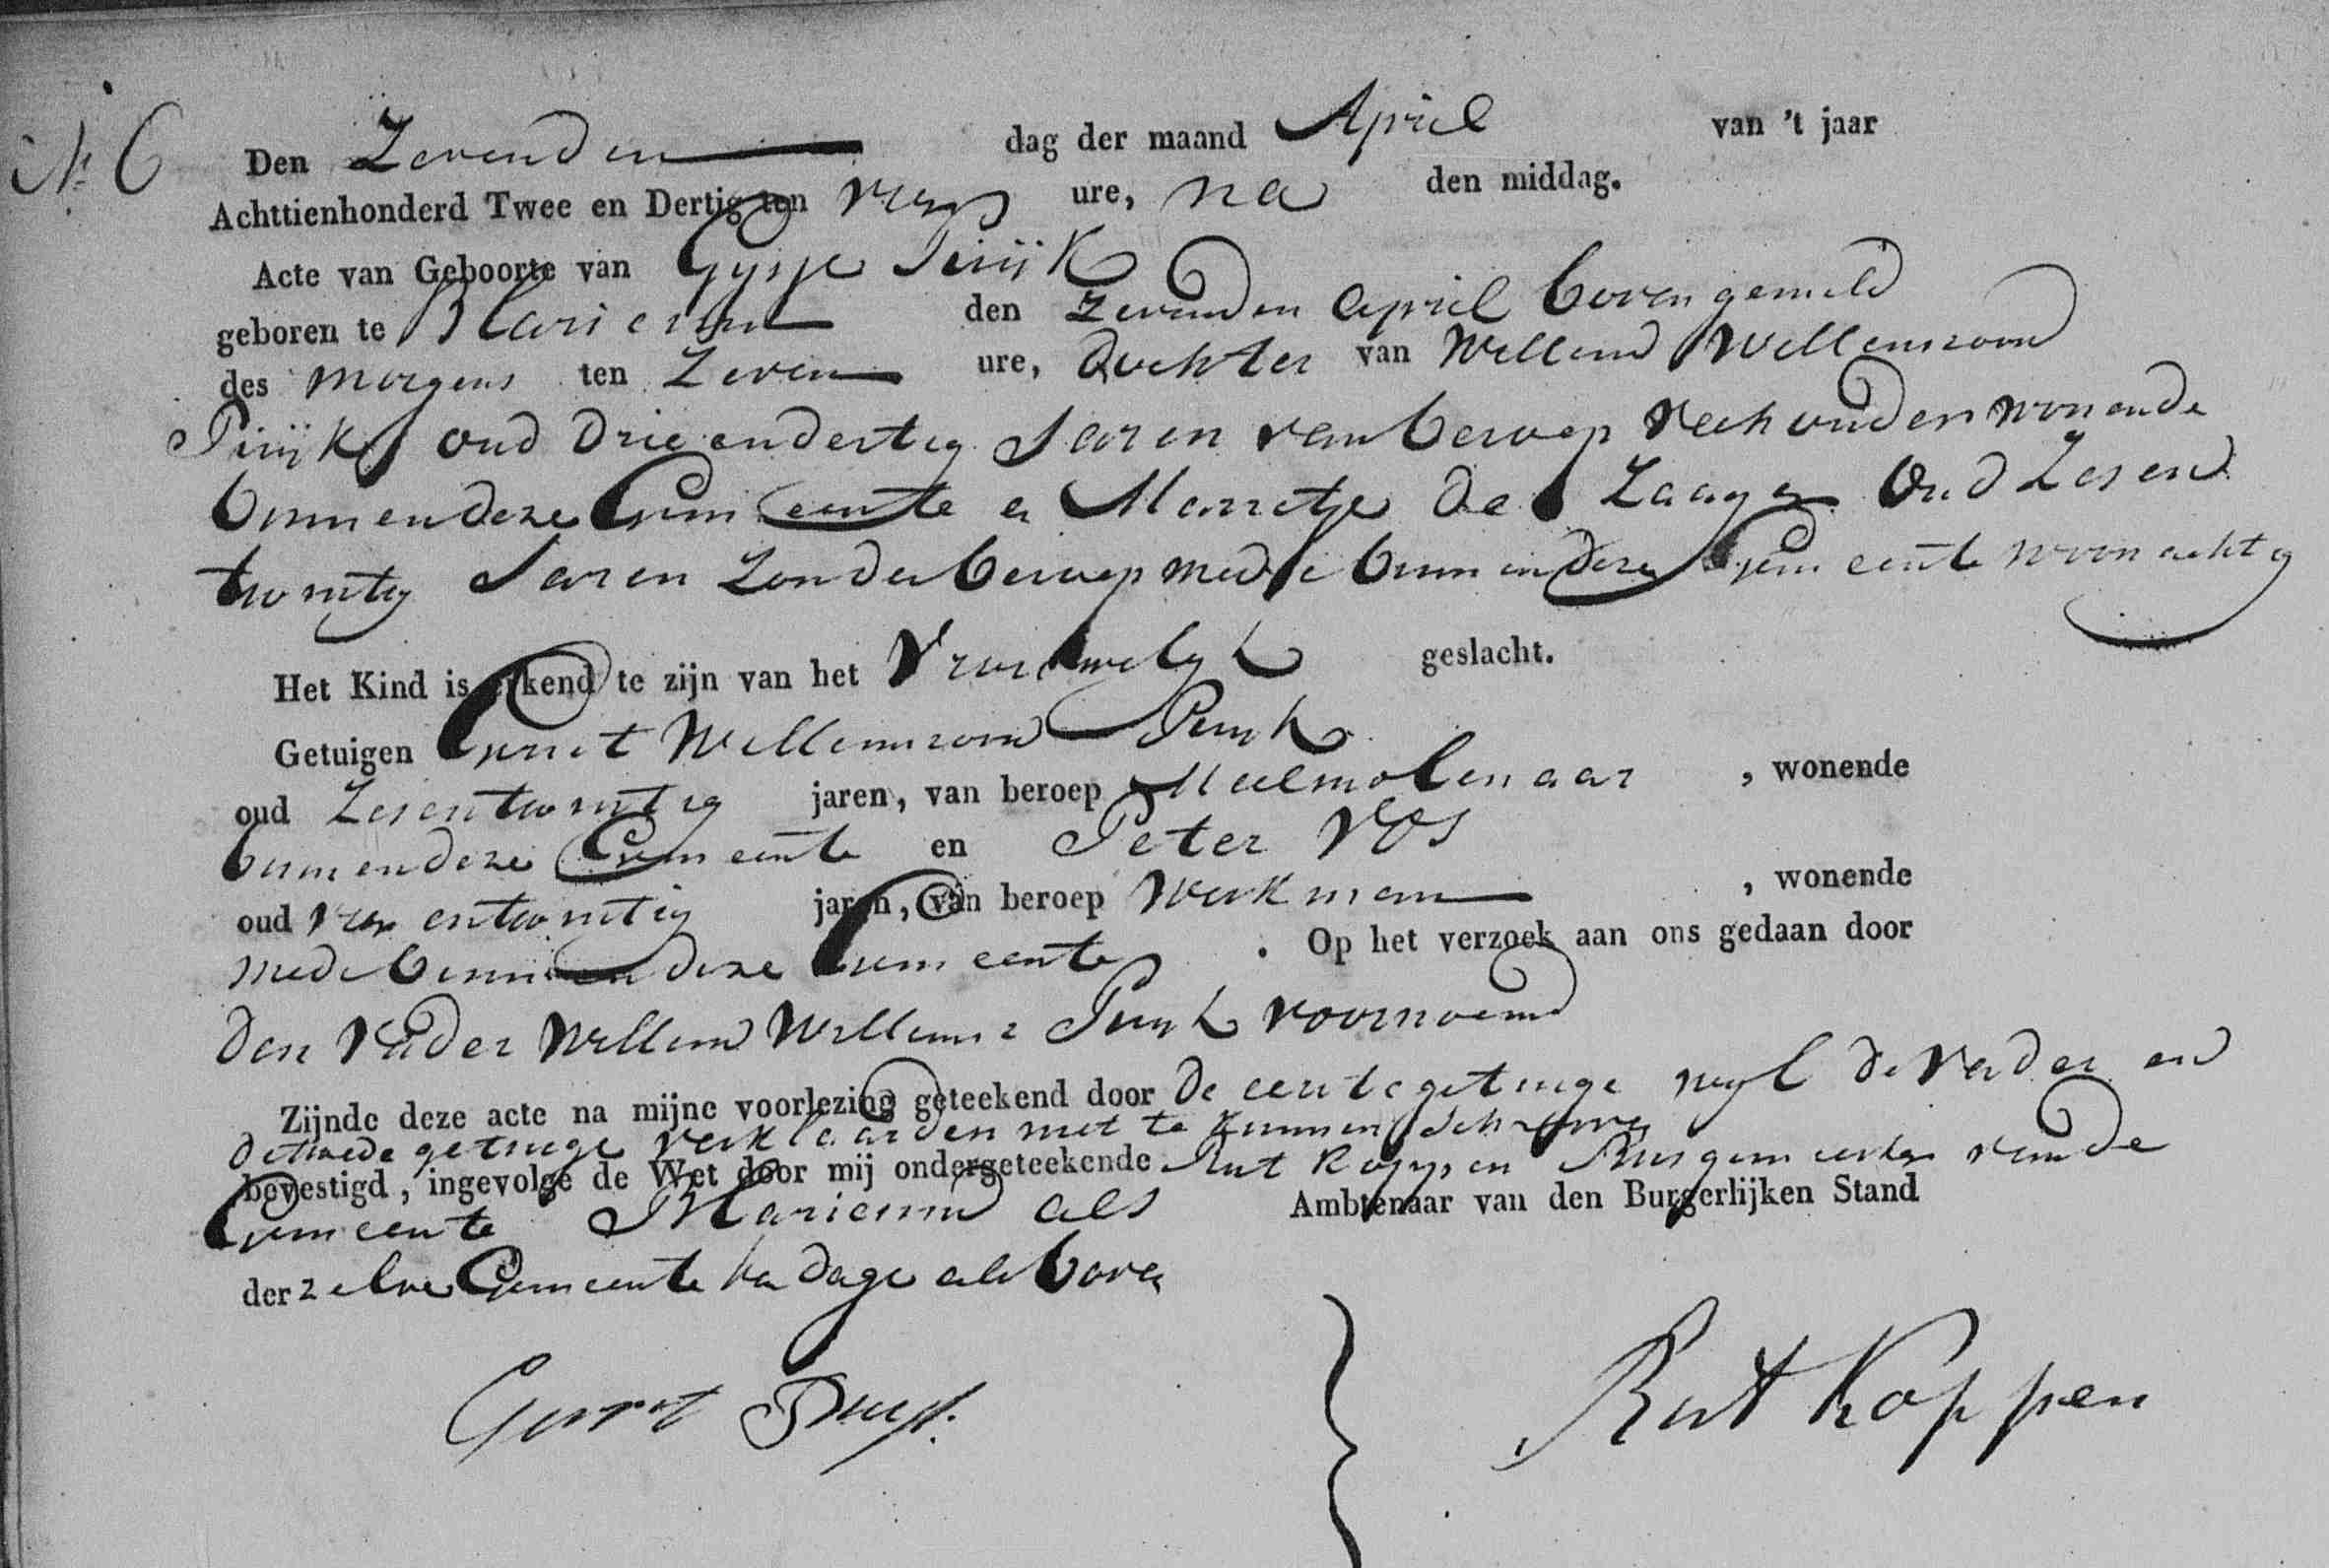 N. 6 Den Zevenden dag der maand April van 't jaar
Achttienhonderd Twee en Dertig ten vier ure, na den middag.
Acte van Geboorte van Gysje
geboren te Blaricum den Zevenden April bovengemeld
des morgens ten Zeven ure, dochter van Willem Willemszoon
oud drieendertig Jaren van beroep veehouder wonende
binnen deze Gemeente en Marretje de Zaager Oud Zesen
twintig Jaren zonder beroep mede binnen deze Gemeente woonachtig
Het Kind is erkend te zijn van het Vrouwelyk geslacht.
Getuigen Gerrit Willemszoon
oud Zesentwintig jaren, van beroep Meelmolenaar, wonende
binnen deze Gemeente en Peter Vos
oud vier entwintig jaren, van beroep Werkman, wonende
mede binnen deze Gemeente. Op het verzoek aan ons gedaan door
den Vader Willem Willemsz voornoemd
Zijnde deze acte na mijne voorlezing geteekend door de eerste getuige wyl de Vader en
de twede getuige verklaarden niet te kunnen schryven
bevestigd, ingevolge de Wet door mij ondergeteekende Rut Koppen Burgemeester van de
Gemeente Blaricum als Ambtenaar van den Burgerlijken Stand
der zelve Gemeente ten dage als boven
Gerrit
Rut Koppen